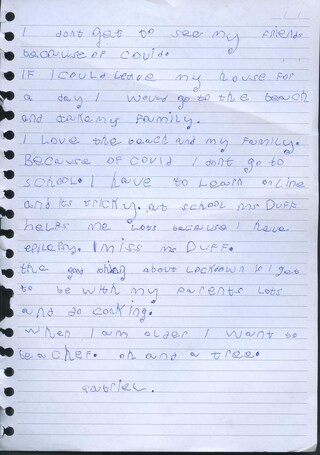 I dont get to see my friends
because of covid.
IF I COULD Leave my house for
a day I would go to the beach
and take my Family.
I Love the beach and my Family.
Because OF covid I dont go to
SCHOOL. I have to Learn online
and its tricky. at school ms DUFF
helps me Lots because I have
epilepsy. I miss ms DUFF.
the good thing about Lockdown is I get
to be with my parents Lots
and do cooking.
when I am older I want to
be a CHeF. oh and a tree.
Gabriel.